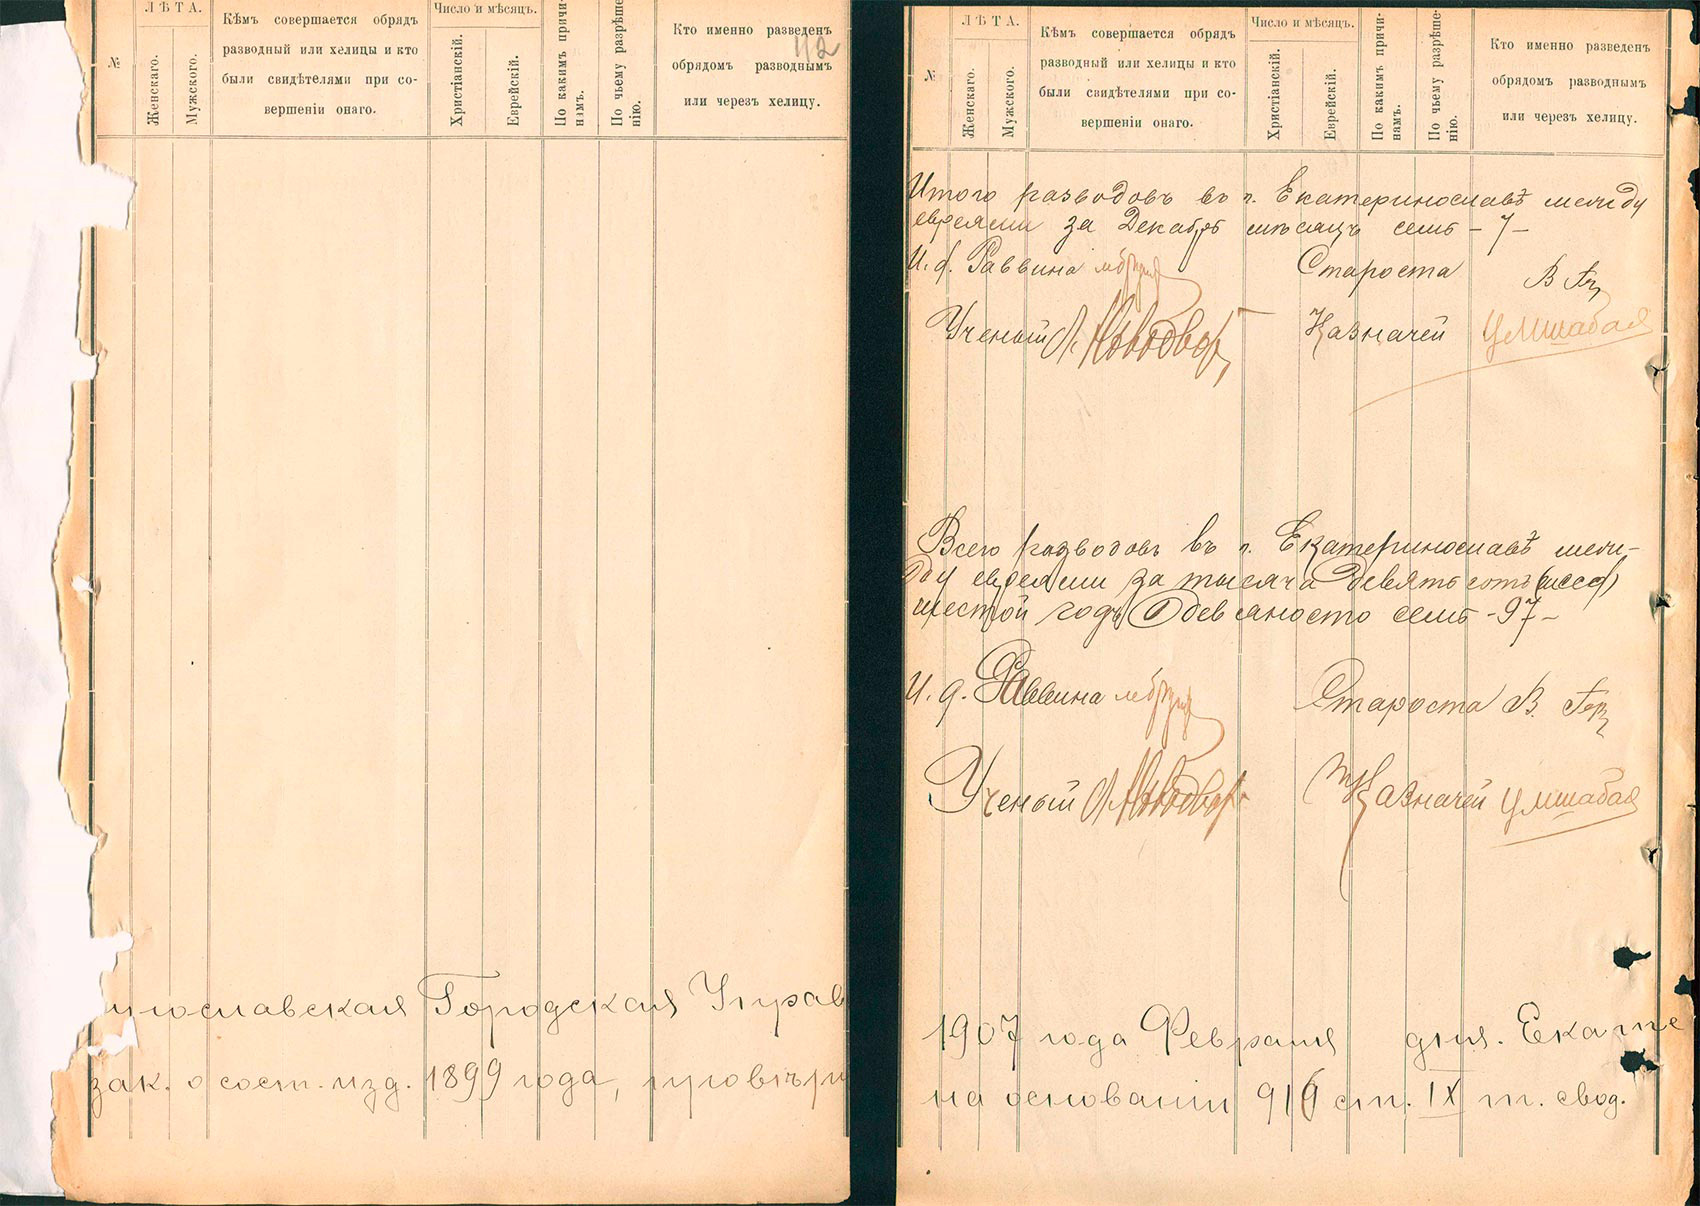 №
ЛѢТА.
Женскаго.
Мужского.
Кѣмъ совершается обрядъ
разводный или хелицы и кто
были свидѣтелями при со-
вершеніи онаго.
Число и мѣсяцъ.
Христіанскій.
Еврейскій.
По какимъ причи-
намъ.
По чьему разрѣше-
нію.
Кто именно разведенъ
обрядомъ разводнымъ
или черезъ хелицу.
112
нославская Городская Управ
зак. о сост. изд. 1899 года, провѣри
№
ЛѢТА.
Женскаго.
Мужского.
Кѣмъ совершается обрядъ
разводный или хелицы и кто
были свидѣтелями при со-
вершеніи онаго.
Число и мѣсяцъ.
Христіанскій.
Еврейскій.
По какимъ причи-
намъ.
По чьему разрѣше-
нію.
Кто именно разведенъ
обрядомъ разводнымъ
или черезъ хелицу.
Итого разводовъ въ г. Екатеринославѣ между
евреями за Декабрь мѣсяцъ семь - 7 -
И. д. Раввина Староста В
Ученый Казначей
Всего разводовъ въ г. Екатеринославѣ меж-
ду евреями за тысяча девятьсотъ
шестой годъ девяносто семь - 97 -
И. д. Раввина Староста В.
Ученый Казначей
1907 года Февраля дня. Екате
на основаніи 916 ст. IX т. свод.